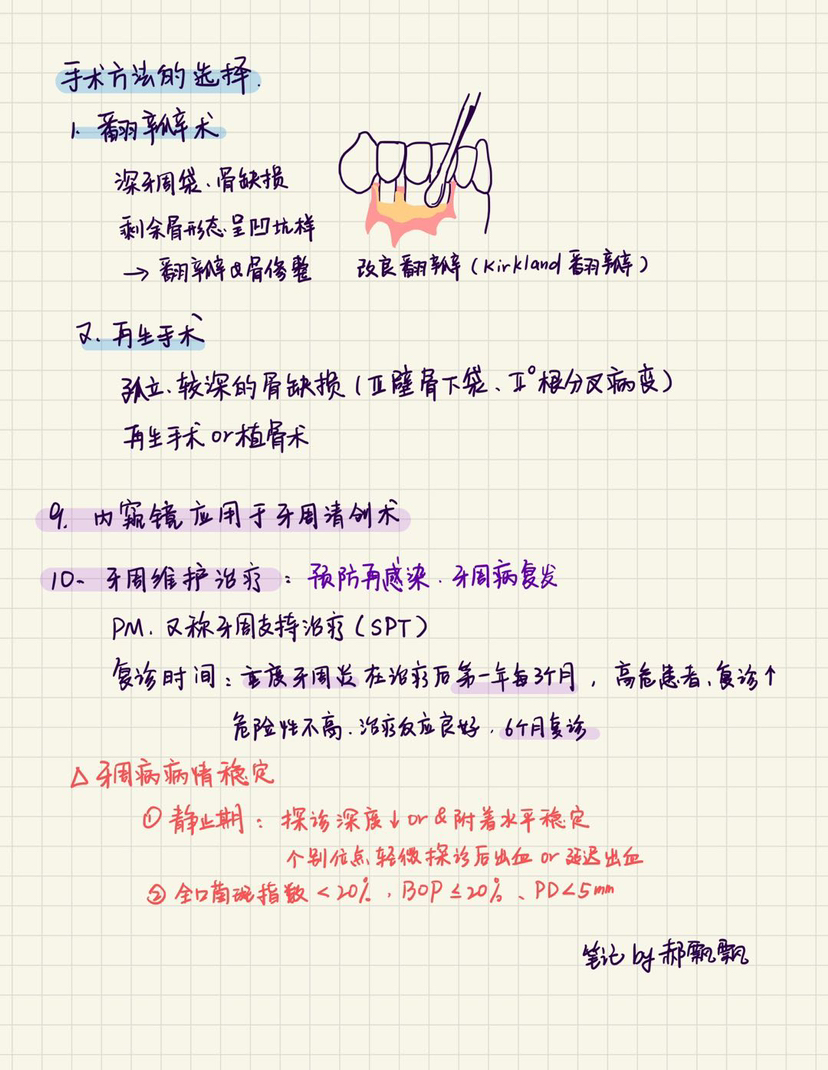 手术方法的选择.
1. 翻瓣术
深牙周袋、骨缺损
剩余骨形态呈凹坑样
→ 翻瓣&骨修整
改良翻瓣(Kirkland翻瓣)
2. 再生手术
孤立、较深的骨缺损(Ⅲ壁骨下袋、Ⅱ°根分叉病变)
再生手术or植骨术
9. 内窥镜应用于牙周清创术
10、牙周维护治疗:预防再感染、牙周病复发
PM、又称牙周支持治疗(SPT)
复诊时间:重度牙周炎在治疗后第一年每3个月,高危患者、复诊↑
危险性不高、治疗反应良好、6个月复诊
△ 牙周病病情稳定
① 静止期:探诊深度↓or&附着水平稳定
个别位点轻微探诊后出血or延迟出血
② 全口菌斑指数<20%、BOP≤20%、PD<5mm
笔记by郝飘飘